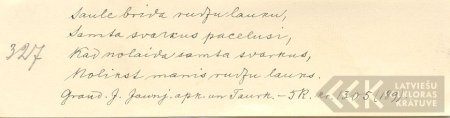 Saule brida rudzu lauku,
Samta svarkus pacelusi,
327
Kad nolaida samta svarkus,
Nolikst manis rudzu lauks.
Graud. J. Jaunj. apk. un Taurk. – JR. 1305, 189
LATVIEŠU
FOLKLORAS
KRĀTUVE